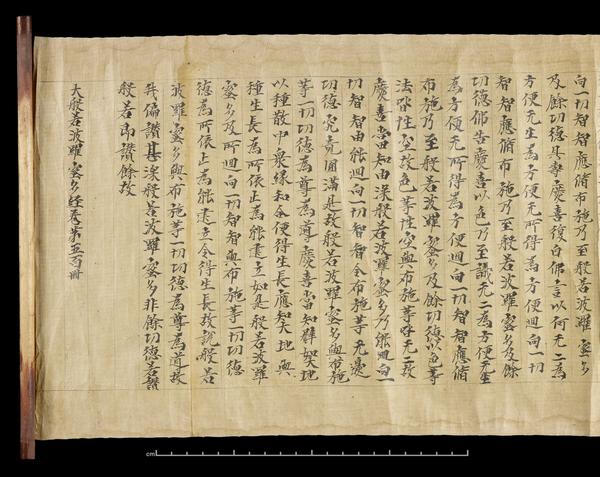 向一切智智應脩布施乃至般若波羅蜜多
及餘功德具壽慶喜復白佛言以何无二為
方便无生為方便无所得為方便迴向一切
智智應脩布施乃至般若波羅蜜多及餘
功德佛告慶喜以色乃至識无二為方便无生
為方便无所得為方便迴向一切智智應脩
布施乃至般若波羅蜜多及餘功德以色等
法性空故色等性空與布施等无二故
慶喜當知由深般若波羅蜜多乃能迴向一
切智智由能迴向一切智智令布施等无邊
功德究竟圓滿是故般若波羅蜜多與布施
等一切功德為尊為導慶喜當知譬如大地
以種散中眾緣和合便得生長應知大地與
種生長為所依止為能建立如是般若波羅
蜜多及所迴向一切智智與布施等一切功
德為所依止為能建立令得生長故說般若
波羅蜜多與布施等一切功德為尊為導故
我偏讚甚深般若波羅蜜多非餘功德若讚
般若即讚餘故
大般若波羅蜜多經卷第五百卌
cm